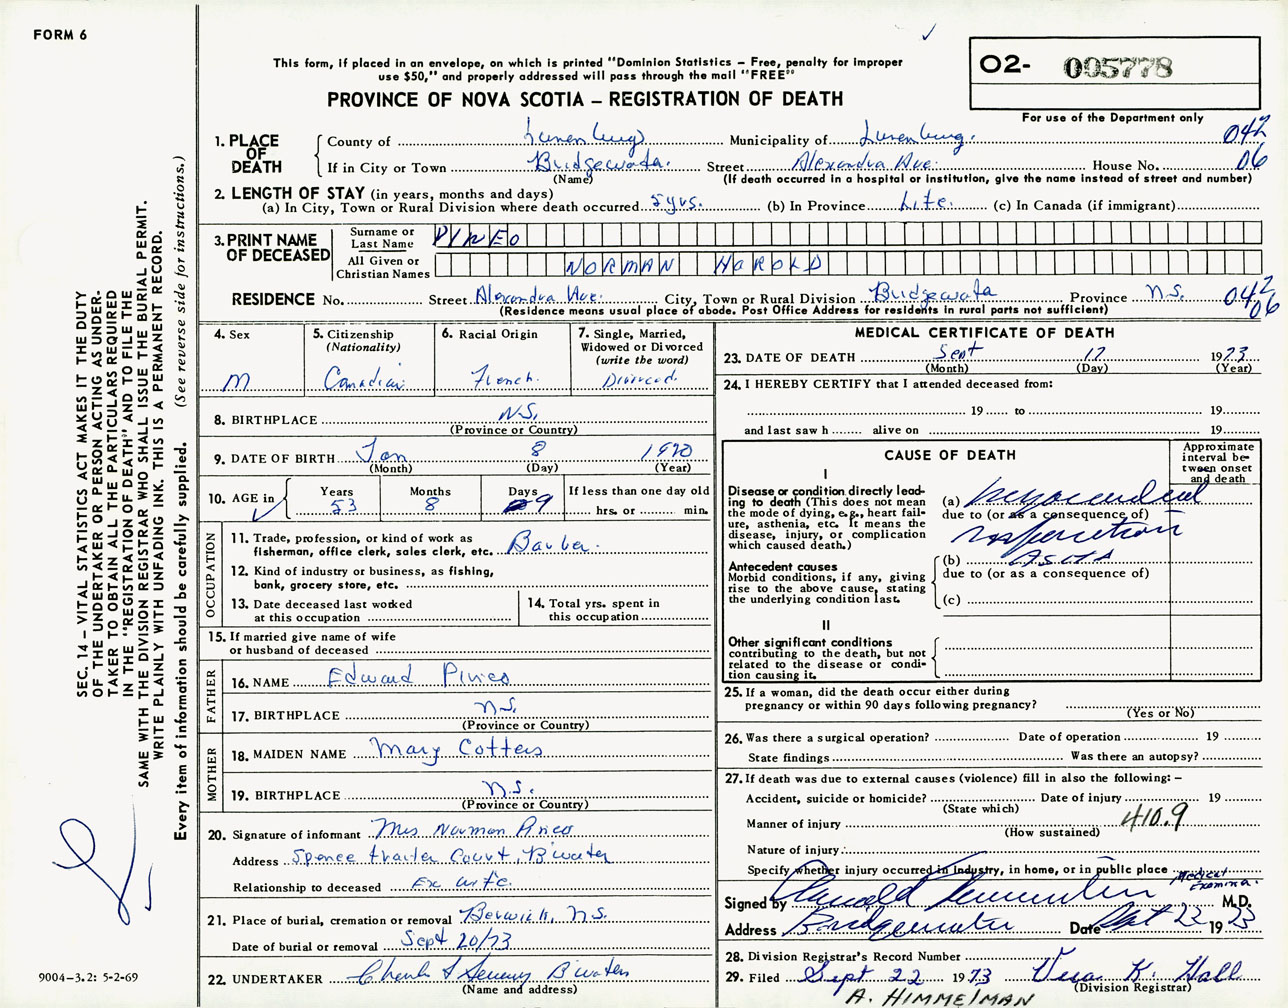 FORM 6
This form, if placed in an envelope, on which is printed "Dominion Statistics – Free, penalty for improper
use $50," and properly addressed will pass through the mail "FREE"
PROVINCE OF NOVA SCOTIA – REGISTRATION OF DEATH
O2- 005778
For use of the Department only
1. PLACE OF DEATH
County of Lunenburg Municipality of Lunenburg. 042
If in City or Town Bridgewater. Street Alexandra Ave. House No. 06
(Name) (If death occurred in a hospital or institution, give the name instead of street and number)
2. LENGTH OF STAY (in years, months and days)
(a) In City, Town or Rural Division where death occurred 5 yrs. (b) In Province Life. (c) In Canada (if immigrant)
3. PRINT NAME OF DECEASED
Surname or Last Name PINEO
All Given or Christian Names NORMAN HAROLD
RESIDENCE No. Street Alexandra Ave. City, Town or Rural Division Bridgewater Province N.S. 042
(Residence means usual place of abode. Post Office Address for residents in rural parts not sufficient) 06
4. Sex
M
5. Citizenship
(Nationality)
Canadian
6. Racial Origin
French.
7. Single, Married,
Widowed or Divorced
(write the word)
Divorced.
8. BIRTHPLACE N.S.
(Province or Country)
9. DATE OF BIRTH Jan 8 1920
(Month) (Day) (Year)
10. AGE in
Years 53
Months 8
Days 9
If less than one day old
hrs. or min.
OCCUPATION
11. Trade, profession, or kind of work as
fisherman, office clerk, sales clerk, etc. Barber.
12. Kind of industry or business, as fishing,
bank, grocery store, etc.
13. Date deceased last worked
at this occupation
14. Total yrs. spent in
this occupation
15. If married give name of wife
or husband of deceased
FATHER
16. NAME Edward Pineo
17. BIRTHPLACE N.S.
(Province or Country)
MOTHER
18. MAIDEN NAME Mary Cotters
19. BIRTHPLACE N.S.
(Province or Country)
20. Signature of informant Mrs Norman Pineo
Address Spence trailer Court, B'water
Relationship to deceased Ex wife.
21. Place of burial, cremation or removal Berwick, N.S.
Date of burial or removal Sept 20/73
22. UNDERTAKER B'water
(Name and address)
MEDICAL CERTIFICATE OF DEATH
23. DATE OF DEATH Sept 17 1973
(Month) (Day) (Year)
24. I HEREBY CERTIFY that I attended deceased from:
19 to 19
and last saw h alive on 19
CAUSE OF DEATH
Approximate
interval be-
tween onset
and death
I
Disease or condition directly lead-
ing to death (This does not mean
the mode of dying, e.g., heart fail-
ure, asthenia, etc. It means the
disease, injury, or complication
which caused death.)
(a) Myocardial
due to (or as a consequence of)
Antecedent causes
Morbid conditions, if any, giving
rise to the above cause, stating
the underlying condition last.
(b)
due to (or as a consequence of)
(c)
II
Other significant conditions
contributing to the death, but not
related to the disease or condi-
tion causing it.
25. If a woman, did the death occur either during
pregnancy or within 90 days following pregnancy?
(Yes or No)
26. Was there a surgical operation? Date of operation 19
State findings Was there an autopsy?
27. If death was due to external causes (violence) fill in also the following: –
Accident, suicide or homicide? Date of injury 19
(State which)
Manner of injury 410.9
(How sustained)
Nature of injury
Specify whether injury occurred in industry, in home, or in public place
Medical Examiner.
Signed by M.D.
Address Bridgewater Date Sept 22 1973
28. Division Registrar's Record Number
29. Filed Sept 22 1973 Vera K. Hall
(Division Registrar)
A. HIMMELMAN
SEC. 14 – VITAL STATISTICS ACT MAKES IT THE DUTY
OF THE UNDERTAKER OR PERSON ACTING AS UNDER-
TAKER TO OBTAIN ALL THE PARTICULARS REQUIRED
IN THE "REGISTRATION OF DEATH" AND TO FILE THE
SAME WITH THE DIVISION REGISTRAR WHO SHALL ISSUE THE BURIAL PERMIT.
WRITE PLAINLY WITH UNFADING INK. THIS IS A PERMANENT RECORD.
Every item of information should be carefully supplied. (See reverse side for instructions.)
9004-3.2: 5-2-69